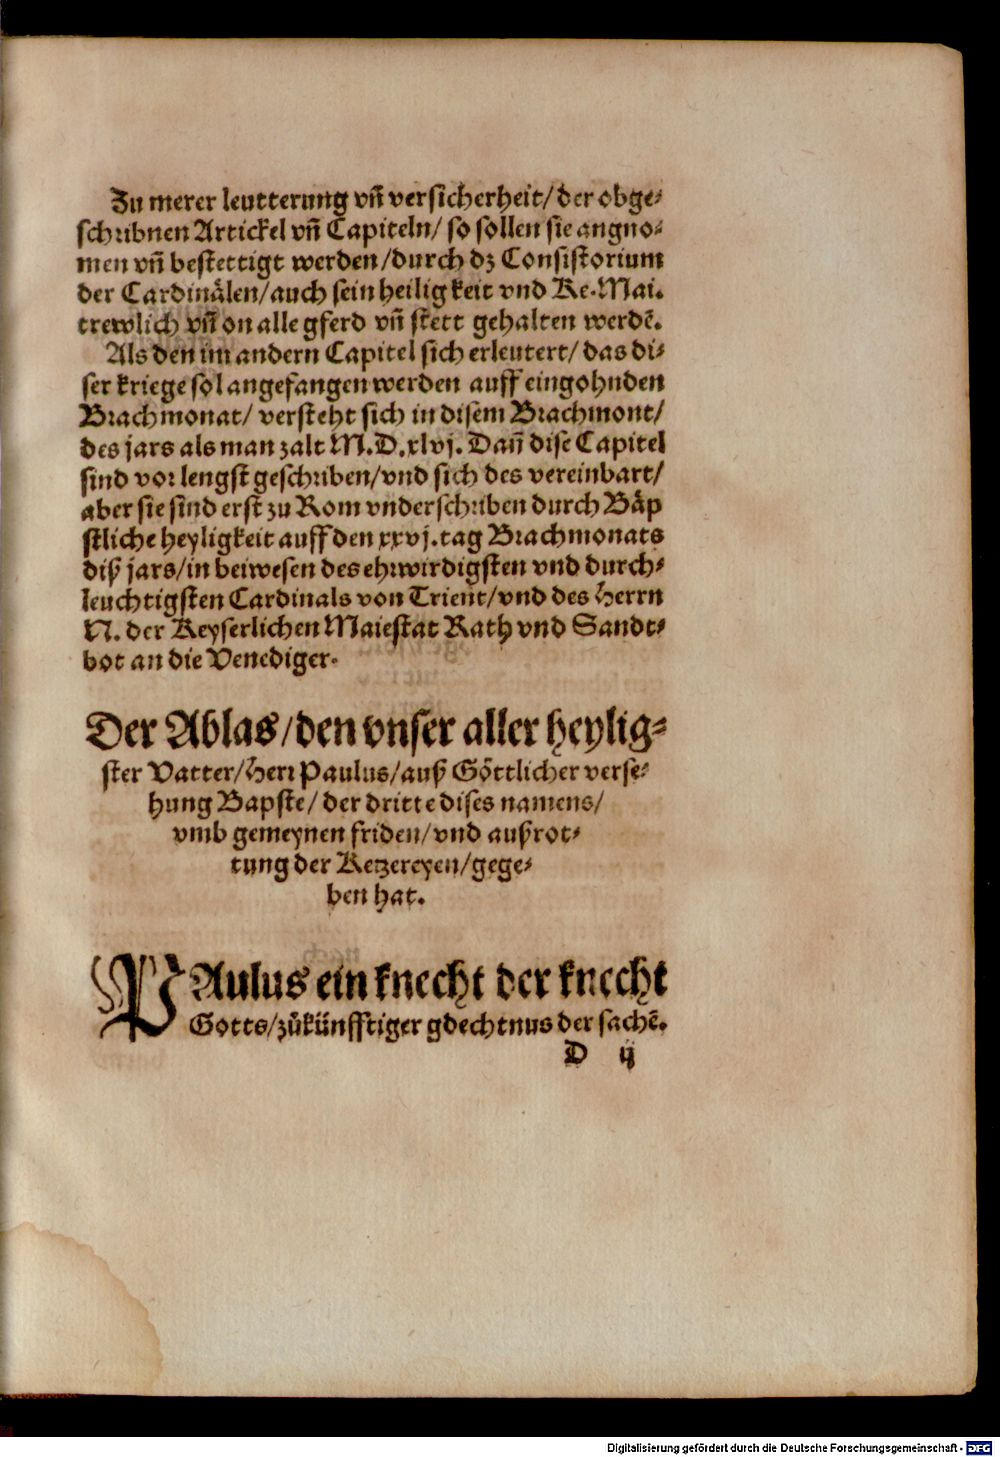 Zu merer leutterung vñ versicherheit/ der obge-
schribnen Artickel vñ Capiteln/ so sollen sie angno-
men vñ bestettigt werden/durch dz Consistorium
der Cardinälen/auch sein heiligkeit vnd Ke. Mai.
trewlich vñ on alle gferd vñ stett gehalten werdē.
Als den im andern Capitel sich erleutert/ das di-
ser kriege sol angefangen werden auff eingohnden
Brachmonat/ versteht sich in disem Brachmont/
des jars als man zalt M.D.xlvj. Dañ dise Capitel
sind vor lengst geschriben/vnd sich des vereinbart/
aber sie sind erst zu Rom vnderschriben durch Bäp
stliche heyligkeit auff den xxvj. tag Brachmonats
diß jars/in beiwesen des ehrwirdigsten vnd durch-
leuchtigsten Cardinals von Trient/vnd des Herrn
N. der Keyserlichen Maiestat Rath vnd Sandt-
bot an die Venediger.
Der Ablas/den vnser aller heylig-
ster Vatter/Herr Paulus/auß Göttlicher verse-
hung Bapste/ der dritte dises namens/
vmb gemeynen friden/vnd außrot-
tung der Ketzereyen/gege-
ben hat.
PAulus ein knecht der knecht
Gotts/zůkünfftiger gdechtnus der sachē.
D ij
Digitalisierung gefördert durch die Deutsche Forschungsgemeinschaft - DFG